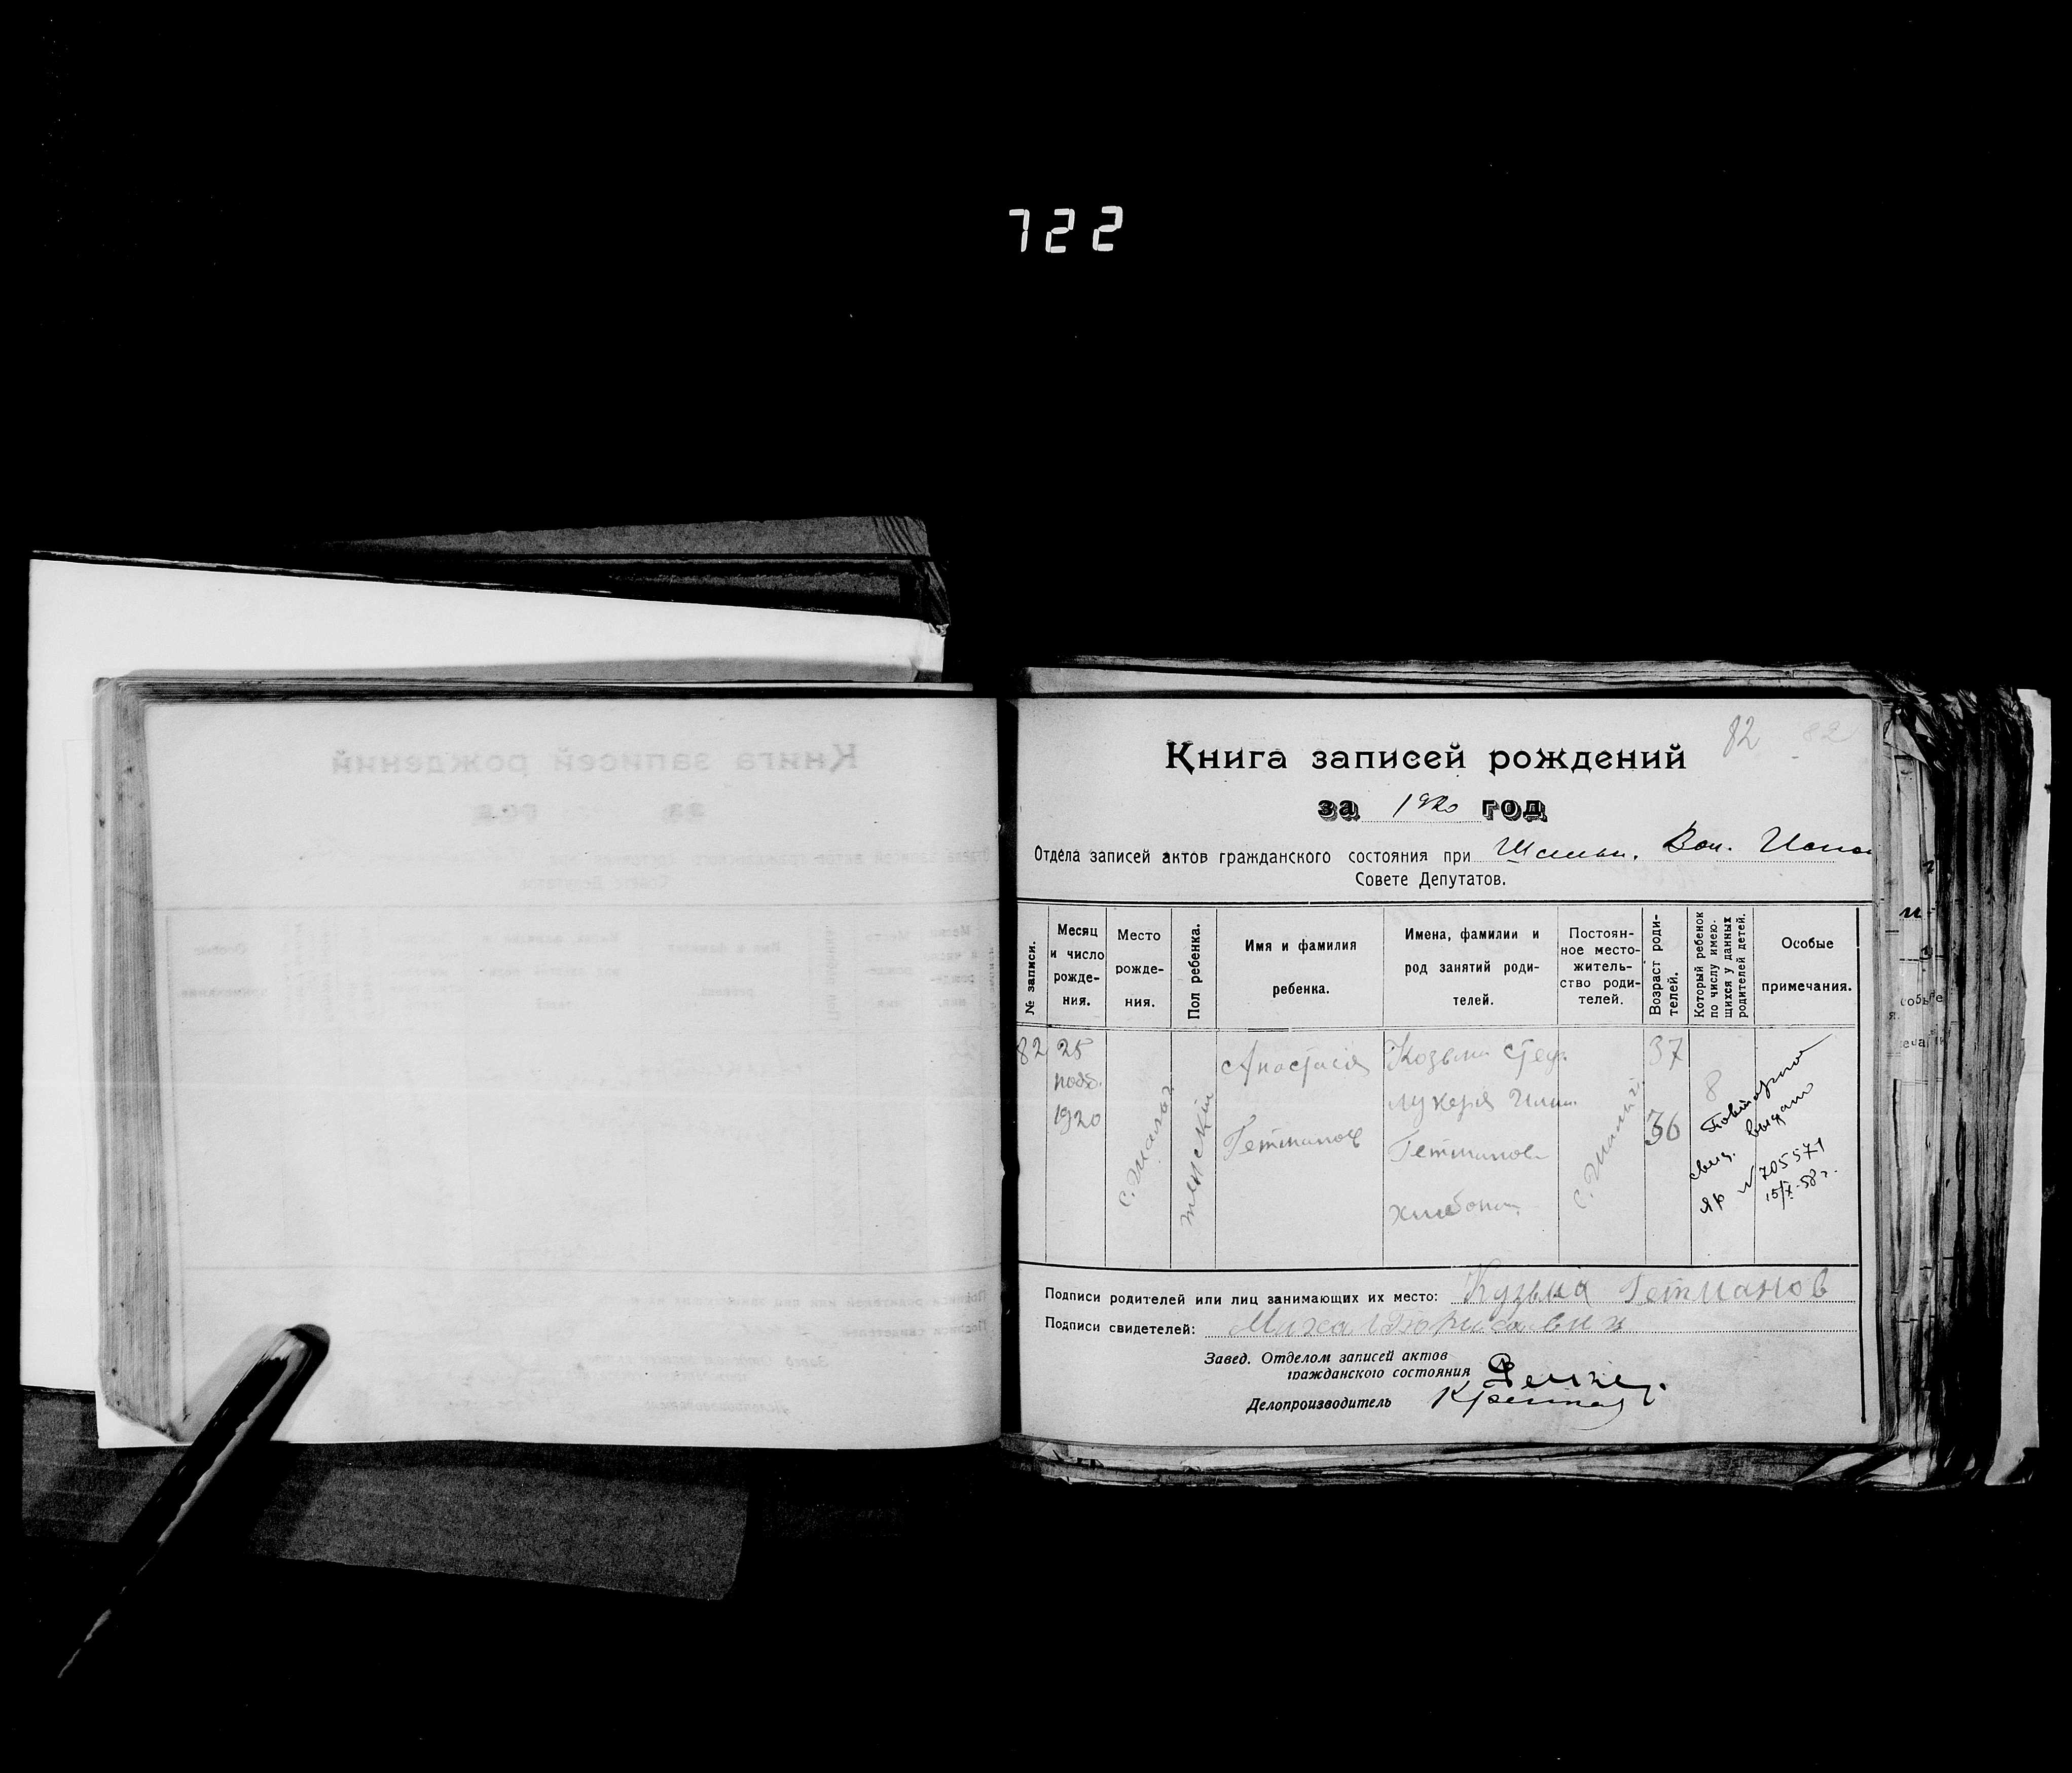 722
82 82
Книга записей рождений
за 1920 год
Отдела записей актов гражданского состояния при Вол.
Совете Депутатов.
№ записи.
Месяц и число рожде- ния.
Место рожде- ния.
Пол ребенка.
Имя и фамилия ребенка.
Имена, фамилии и род занятий роди- телей.
Постоян- ное место- житель- ство роди- телей.
Возраст роди- телей.
Который ребенок по числу имею- щихся у данных родителей детей.
Особые примечания.
82
25
нояб.
1920
женский
Анастасія
Гетманов
Козьма Стеф.
Лукерія
Гетманов
с.
37
36
8
Повторное
свид. выдано
ЯР № 705571
15/X-58г.
Подписи родителей или лиц занимающих их место: Кузьма Гетманов
Подписи свидетелей:
Завед. Отделом записей актов
гражданского состояния
Делопроизводитель